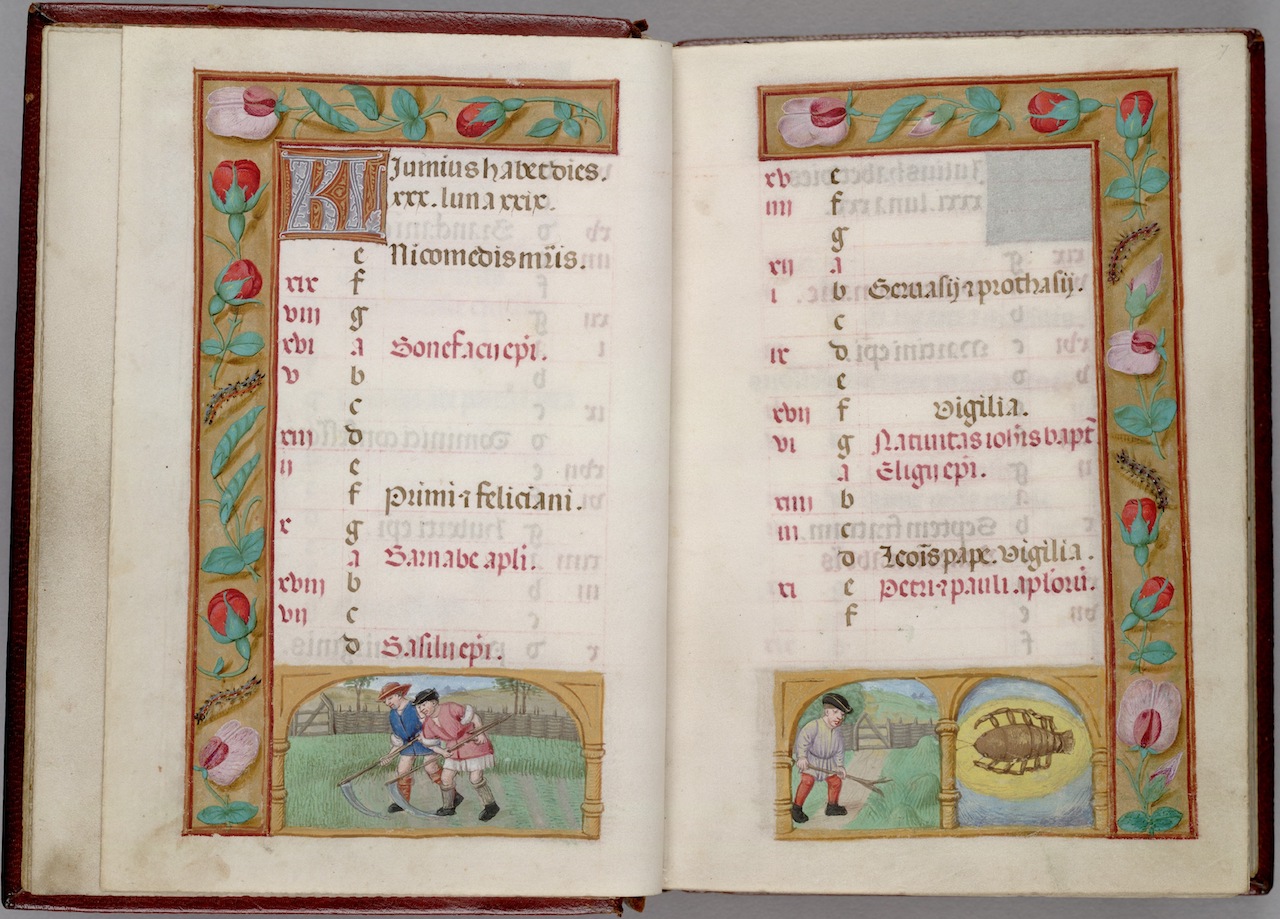 KL Iumius habet dies.
xxx. luna xxix.
e Nicomedis mris.
xix f
viii g
xvi a Bonefacii epi.
v b
c
xiii d
ii e
f Primi ⁊ feliciani.
x g
a Barnabe apli.
xviii b
vii c
d Basilii epi.
xv e
iiii f
g
xii a
i b Geruasij ⁊ prothasij.
c
ix d
e
xvii f Vigilia.
vi g Natiuitas iohis bapt
a Eligij epi.
xiiii b
iii c
d Leois pape. Vigilia.
xi e Petri ⁊ pauli. aplorum.
f